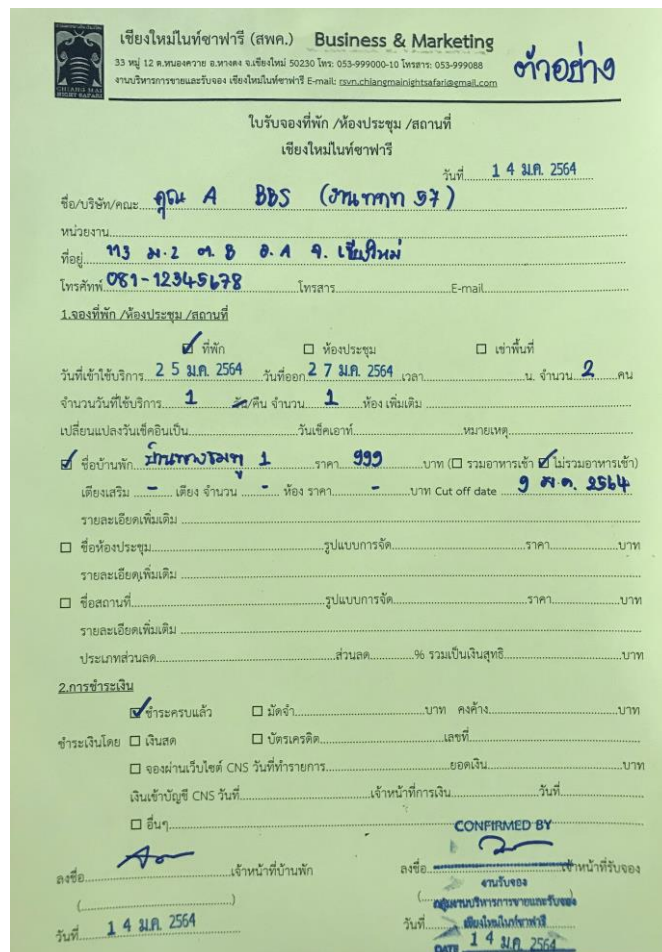 เชียงใหม่ไนท์ซาฟารี (สพค.) Business & Marketing
33 หมู่ 12 ต.หนองควาย อ.หางดง จ.เชียงใหม่ 50230 โทร: 053-999000-10 โทรสาร: 053-999088
งานบริหารการขายและรับจอง เชียงใหม่ไนท์ซาฟารี E-mail: rsvn.chiangmainightsafari@gmail.com
CHIANG MAI
NIGHT SAFARI
ตัวอย่าง
ใบรับจองที่พัก /ห้องประชุม /สถานที่
เชียงใหม่ไนท์ซาฟารี
วันที่ 14 ม.ค. 2564
ชื่อ/บริษัท/คณะ คุณ A BBS (งานททท 57)
หน่วยงาน
ที่อยู่ 113 ม.2 ต.B อ.A จ.เชียงใหม่
โทรศัพท์ 081-12345678 โทรสาร E-mail
1.จองที่พัก /ห้องประชุม /สถานที่
☑ ที่พัก ☐ ห้องประชุม ☐ เช่าพื้นที่
วันที่เข้าใช้บริการ 25 ม.ค. 2564 วันที่ออก 27 ม.ค. 2564 เวลา น. จำนวน 2 คน
จำนวนวันที่ใช้บริการ 1 วัน/คืน จำนวน 1 ห้อง เพิ่มเติม
เปลี่ยนแปลงวันเช็คอินเป็น วันเช็คเอาท์ หมายเหตุ
☑ ชื่อบ้านพัก 1 ราคา 999 บาท (☐ รวมอาหารเช้า ☑ ไม่รวมอาหารเช้า)
เตียงเสริม - เตียง จำนวน - ห้อง ราคา - บาท Cut off date 9 2564
รายละเอียดเพิ่มเติม
☐ ชื่อห้องประชุม รูปแบบการจัด ราคา บาท
รายละเอียดเพิ่มเติม
☐ ชื่อสถานที่ รูปแบบการจัด ราคา บาท
รายละเอียดเพิ่มเติม
ประเภทส่วนลด ส่วนลด % รวมเป็นเงินสุทธิ บาท
2.การชำระเงิน
☑ ชำระครบแล้ว ☐ มัดจำ บาท คงค้าง บาท
ชำระเงินโดย ☐ เงินสด ☐ บัตรเครดิต เลขที่
☐ จองผ่านเว็บไซต์ CNS วันที่ทำรายการ ยอดเงิน บาท
เงินเข้าบัญชี CNS วันที่ เจ้าหน้าที่การเงิน วันที่
☐ อื่นๆ
CONFIRMED BY
ลงชื่อ เจ้าหน้าที่บ้านพัก ลงชื่อ เจ้าหน้าที่รับจอง
งานรับจอง
( ) ( กลุ่มงานบริหารการขายและรับจอง
วันที่ 14 ม.ค. 2564 วันที่ เชียงใหม่ไนท์ซาฟารี
DATE 14 ม.ค. 2564